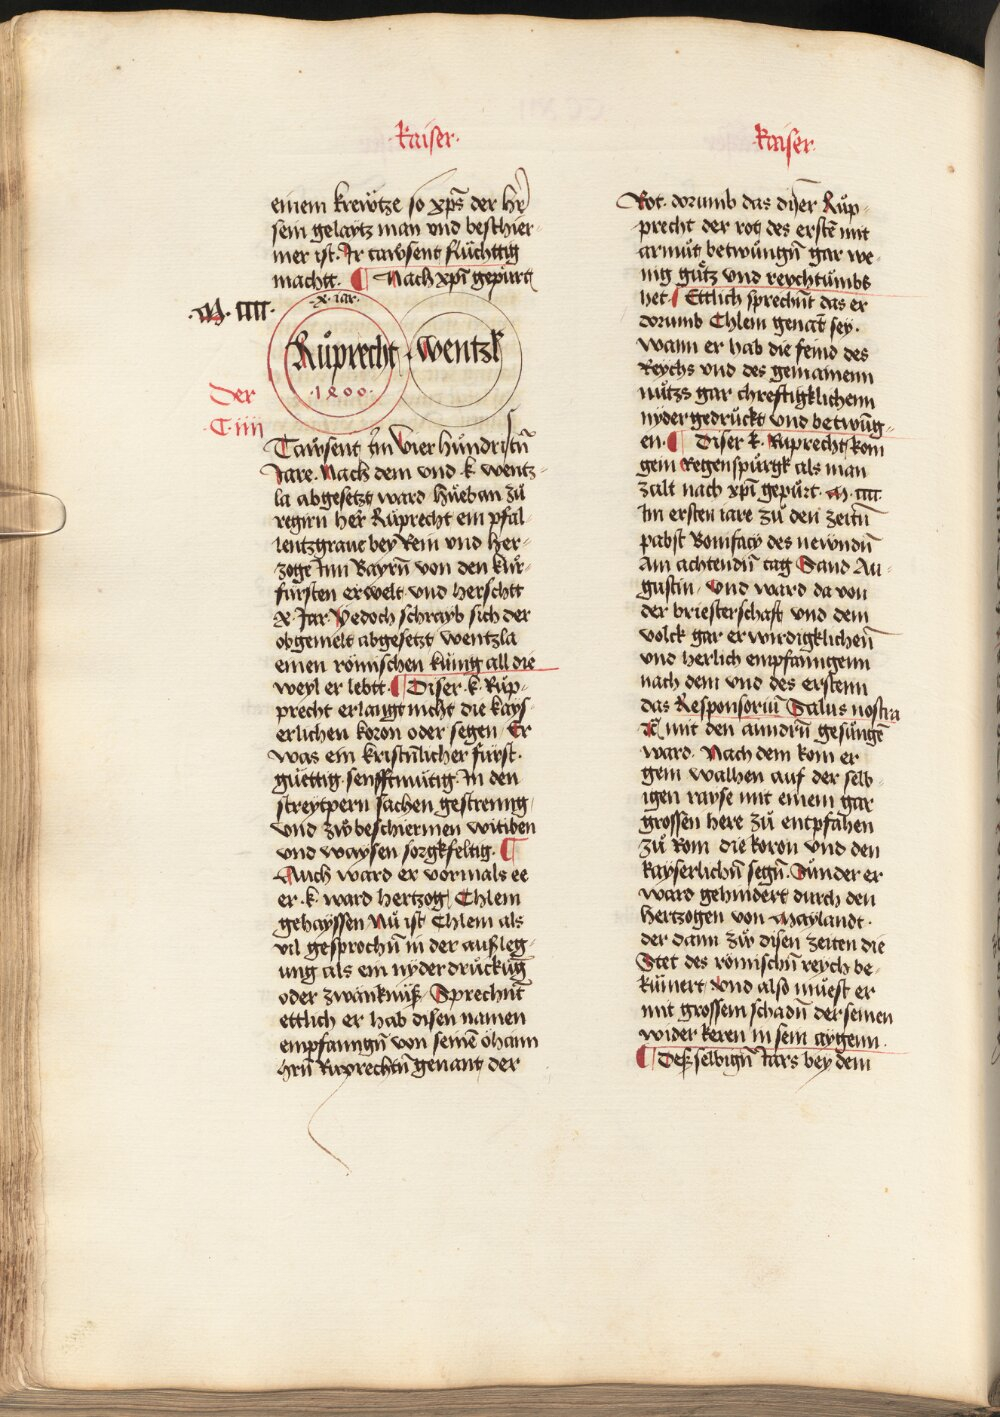 kaiser.
einem krewtze so xp̄s der hr̄
sein gelaitz man vnd beschier-
mer ist. Ir tawsent flüchttig
machtt. ¶ Nach xp̄i gepürt
.M. IIII.
x. iar.
Rüprecht
1800
wentzl
Der
C. iiij
Tawsent im Vier hündristn̄
Jare. Nach dem vnd k. wentz-
la abgesetzt ward hüeb an zü
regirn her Rüprecht ein pfal-
lentzgraue bey Rein vnd her-
zoge Inn Bayrn̄ von den kür-
fürsten erwelt vnd herschtt
x. Jar. Yedoch schrayb sich der
obgemelt abgesetzt wentzla
einen römischen künig all die
weyl er lebtt. ¶ Diser .k. Rüp-
precht erlangt nicht die kays-
erlichen koron oder segen. Er
was ein kristn̄licher fürst.
güettig senfftmütig. In den
streytpern sachen gestreng
vnd zw beschiermen witiben
vnd waysen sorgkfeltig. ¶
Auch ward er vormals ee
er .k. ward hertzog Chlem
gehayssen Nü ist Chlem als
vil gesprochn̄ in der außleg-
ung als ein nyderdruckūg
oder zwanknüß. Sprechnt̄
ettlich er hab disen namen
empfanngn̄ von seinē öhann
hrn̄ Ruprechtn̄ genant der
kaiser.
Rot. dorumb das diser Rüp-
precht der rot des erstē mit
armüt betwüngn̄ gar we-
nig gütz vnd reychtümbs
het. ¶ Ettlich sprechnt̄ das er
dorumb Chlem genāt sey.
wann er hab die feind des
Reychs vnd des gemainenn
nützs gar chreftigklichenn
nyder gedrückt vnd betwūg-
en. ¶ Diser k. Ruprecht kom
gein Regenspürgk als man
zalt nach xp̄i gepürt. M. IIII.
Im ersten iare zü den zeitn̄
pabst Bonifacy des newndn̄
Am achtendn̄ tag Sand Au-
gustin. Vnd ward da von
der briesterschaft vnd dem
volck gar erwirdigklichen̄
vnd herlich empfanngenn
nach dem vnd des erstenn
das Responsoriū Salus nostra
mit den anndrn̄ gesüngē
ward. Nach dem kom er
gein walhen auf der selb-
igen rayse mit einem gar
grossen here zü entpfahen
zü Rom die koron vnd den
kayserlichn̄ segn̄. Sünder er
ward gehindert durch den
hertzogen von Maylandt.
der dann zw disen zeiten die
Stet des römischn̄ reych be-
kümert. Vnd also müest er
mit grossem schadn̄ der seinen
wider keren in sein aygenn.
¶ Deß selbign̄ Iars bey dem